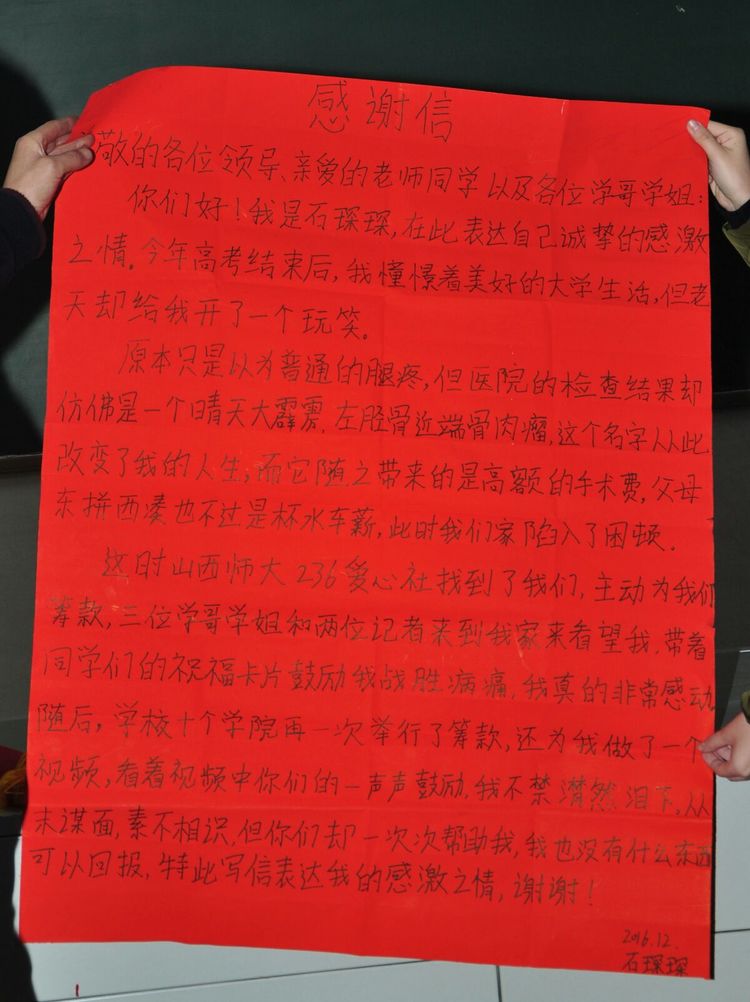 感谢信
敬的各位领导、亲爱的老师同学以及各位学哥学姐:
你们好!我是石琛琛,在此表达自己诚挚的感激
之情。今年高考结束后,我憧憬着美好的大学生活,但老
天却给我开了一个玩笑。
原本只是以为普通的腿疼,但医院的检查结果却
仿佛是一个晴天大霹雳,左胫骨近端骨肉瘤,这个名字从此
改变了我的人生,而它随之带来的是高额的手术费,父母
东拼西凑也不过是杯水车薪,此时我们家陷入了困顿。
这时山西师大236爱心社找到了我们,主动为我们
筹款,三位学哥学姐和两位记者来到我家来看望我,带着
同学们的祝福卡片鼓励我战胜病痛,我真的非常感动
随后,学校十个学院再一次举行了筹款,还为我做了一个
视频,看着视频中你们的一声声鼓励,我不禁潸然泪下,从
未谋面,素不相识,但你们却一次次帮助我,我也没有什么东西
可以回报,特此写信表达我的感激之情,谢谢!
2016.12.
石琛琛